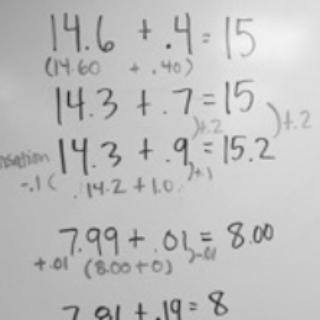 14.6 + .4 = 15
(14.60 + .40)
14.3 + .7 = 15
)+.2 )+.2
14.3 + .9 = 15.2
-.1( 14.2 + 1.0 )+.1
7.99 + .01 = 8.00
+.01 (8.00+0) )-.01
7.81 + .19 = 8